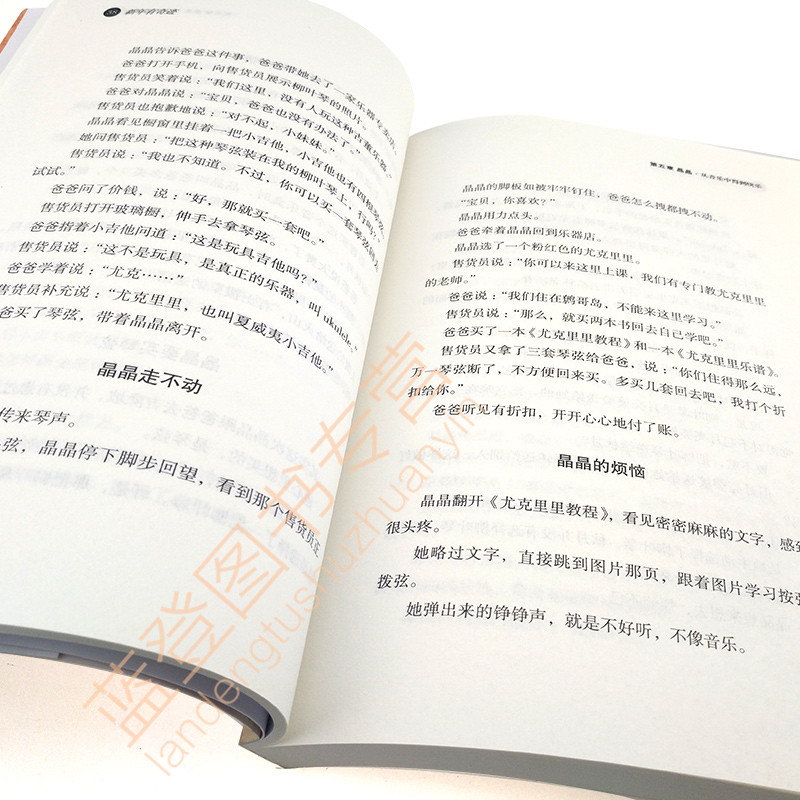 38 新年有奇迹
晶晶告诉爸爸这件事，爸爸带她去了一家乐器专卖店。
爸爸打开手机，向售货员展示柳叶琴的照片。
售货员笑着说：“我们这里，没有人玩这种古董乐器。”
爸爸对晶晶说：“宝贝，爸爸也没有办法了。”
售货员也抱歉地说：“对不起，小妹妹。”
晶晶看见橱窗里挂着一把小吉他，小吉他也有四根琴弦。
她问售货员：“把这种琴弦装在我的柳叶琴上，行吗？”
售货员说：“我也不知道。不过，你可以买一套琴弦回去
试试。”
爸爸问了价钱，说：“好，那就买一套吧。”
售货员打开玻璃橱，伸手去拿琴弦。
爸爸指着小吉他问道：“这是玩具吉他吗？”
售货员说：“这不是玩具，是真正的乐器，叫 ukulele。”
爸爸学着说：“尤克……”
售货员补充说：“尤克里里，也叫夏威夷小吉他。”
爸买了琴弦，带着晶晶离开。
晶晶走不动
传来琴声。
弦，晶晶停下脚步回望，看到那个售货员正
第五章 晶晶·从音乐中得到快乐
晶晶的脚板如被牢牢钉住，爸爸怎么拽都拽不动。
“宝贝，你喜欢？”
晶晶用力点头。
爸爸牵着晶晶回到乐器店。
晶晶选了一个粉红色的尤克里里。
售货员说：“你可以来这里上课，我们有专门教尤克里里
的老师。”
爸爸说：“我们住在鹩哥岛，不能来这里学习。”
售货员说：“那么，就买两本书回去自己学吧。”
爸爸买了一本《尤克里里教程》和一本《尤克里里乐谱》。
售货员又拿了三套琴弦给爸爸，说：“你们住得那么远，
万一琴弦断了，不方便回来买。多买几套回去吧，我打个折
扣给你。”
爸爸听见有折扣，开开心心地付了账。
晶晶的烦恼
晶晶翻开《尤克里里教程》，看见密密麻麻的文字，感到
很头疼。
她略过文字，直接跳到图片那页，跟着图片学习按弦
拨弦。
她弹出来的铮铮声，就是不好听，不像音乐。
蓝登图书专营
landengtushuzhuanyin